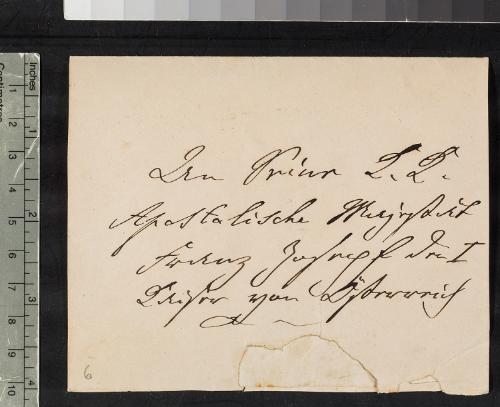 An Seine K. K.
Apostolische Majestät
Franz Joseph den I
Kaiser von Österreich
6
Inches
1
2
3
4
Centimetres
1
2
3
4
5
6
7
8
9
10